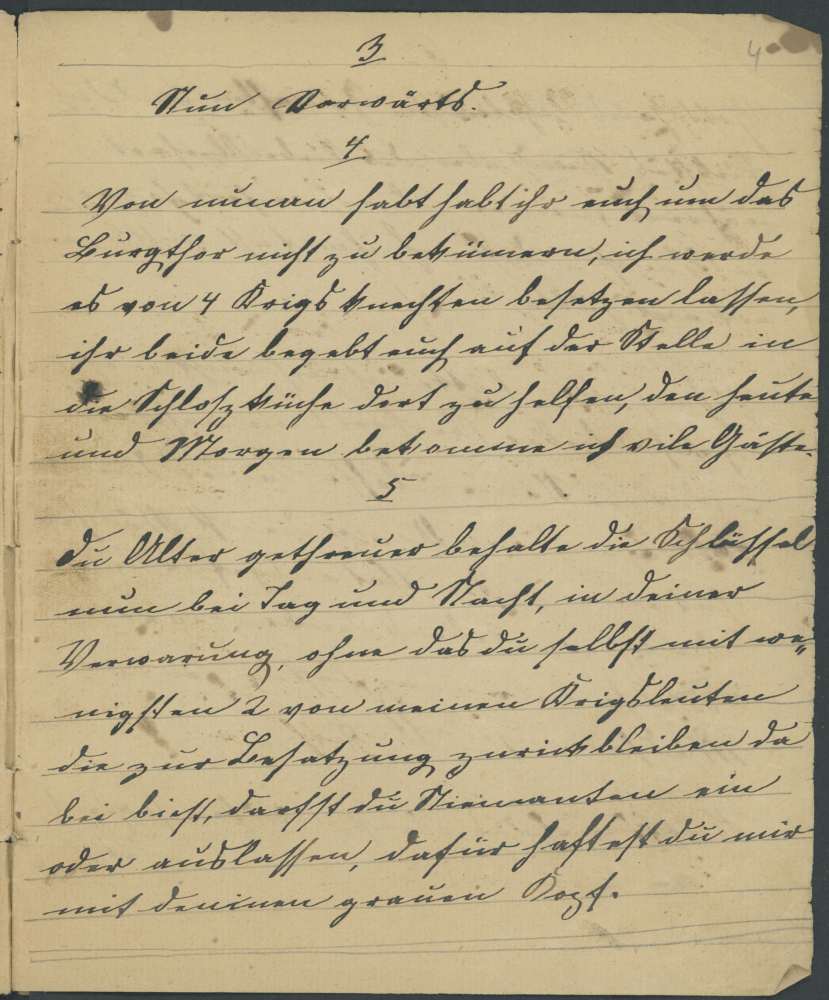 3
4
Nun Vorwärts.
4
Von nunan habt habt ihr euch um das
Burgthor nicht zu bekümern, ich werde
es von 4 Krigsknechten besetzen lassen,
ihr beide begebt euch auf der Stelle in
die Schloszküche dort zu helfen, den heute
und Morgen bekomme ich vile Gäste.
5
Du Alter getheuer behalte die Schlüssel
nun bei Tag und Nacht, in deiner
Verwarung, ohne das du selbst mit we„
nigsten 2 von meinen Krigsleuten
die zur Besatzung zurükbleiben da
bei bist, darfst du Niemanten ein
oder auslassen, dafür haftest du mir
mit deninen grauen Kopf.